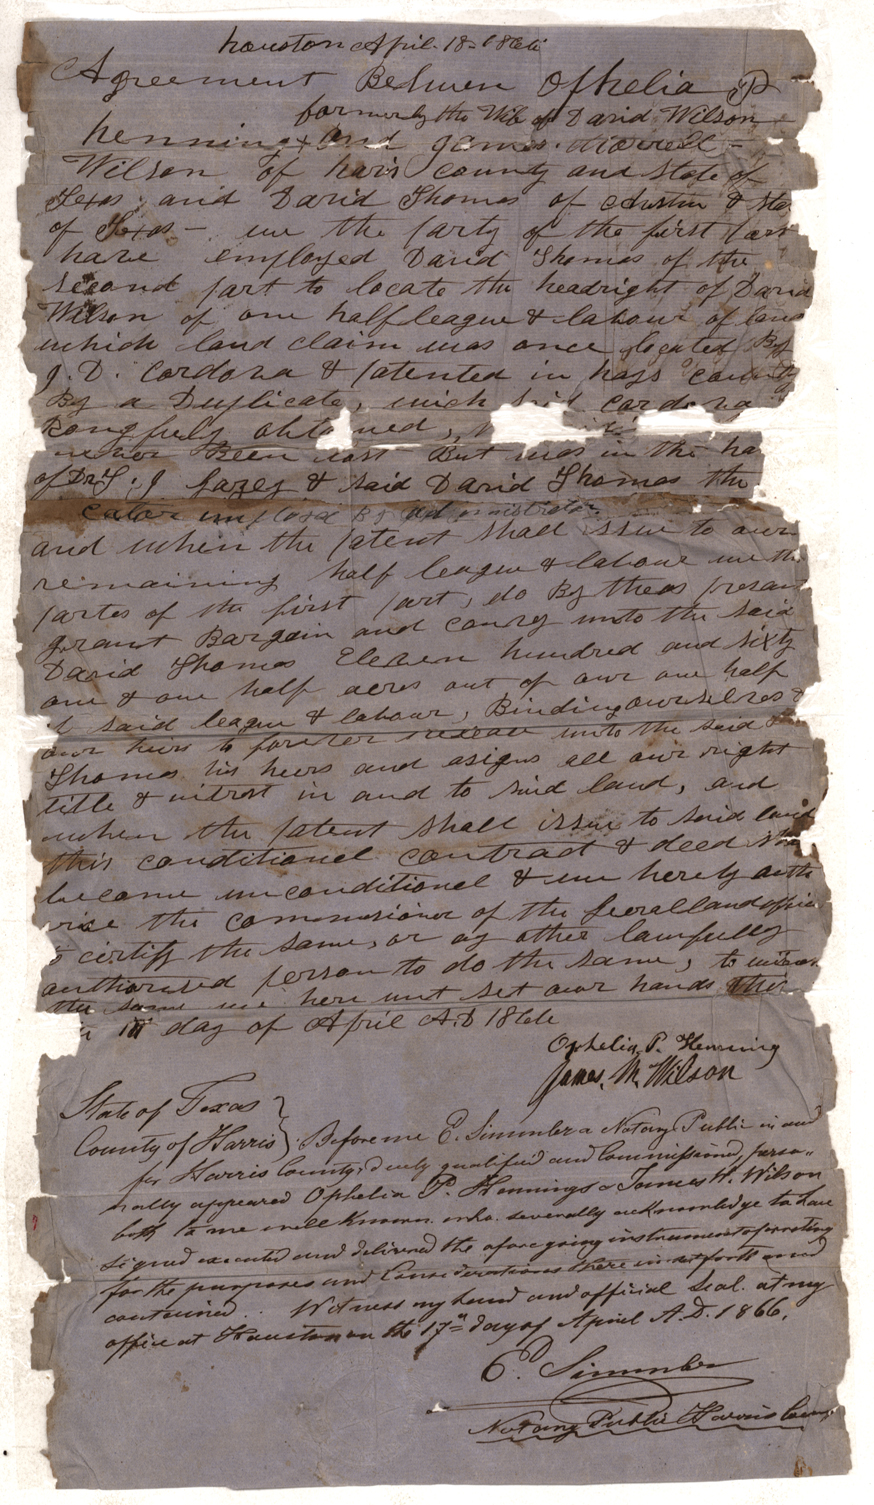 houston April 18 1866
Agreement Between Ophelia P
formerly the Wife of David Wilson
henning + and James Morrell
Wilson of haris county and state of
Texas, and David Thomas of Austin & sta
of Texas - we the party of the first part
have employed David Thomas of the
second part to locate the headright of David
Wilson of one half league & labour of land
which land claim was once located By
J. D. Cordova & patented in hays county
By a Duplicate, which said cordova
Rongfuly obtained,
never Been lost But was in the ha
of Dr S. J. & said David Thomas the
cator employed By administrator
and when the patent shall issue to our
remaining half league & labour we the
partes of the first part, do By theas presan
grant Bargain and convey unto the said
David Thomas Eleven hundred and sixty
one & one half acres out of our one half
said league & labour, Binding ourselves &
our heirs to forever release unto the said
Thomas his heirs and asigns all our right
title & intrest in and to said land, and
when the patent shall issue to said land
this conditionel contract & deed
become unconditionel & we herely autho
rise the commissioner of the general land office
to certify the same, or ay other lawfully
authorised person to do the same, to witness
the same we here unt set our hands this
day of April A.D 1866
Ophelia, P. Henning
James. M. Wilson
State of Texas }
County of Harris } . Before me E. Simmler a Notary Public in and
for Harris County, duely qualified and Commissioned, perso-
nally appeared Ophelia P. Hennings & James W. Wilson
both to me well Known. who. severally acknowledge to have
signed executed and delivered the aforegoing instrument of writing
for the purposes and Considerations there in set forth and
contained. Witness my hand and official Seal. at my
office at Houston on the 17th day of April A.D. 1866.
E. Simmler
Notary Public Harris County